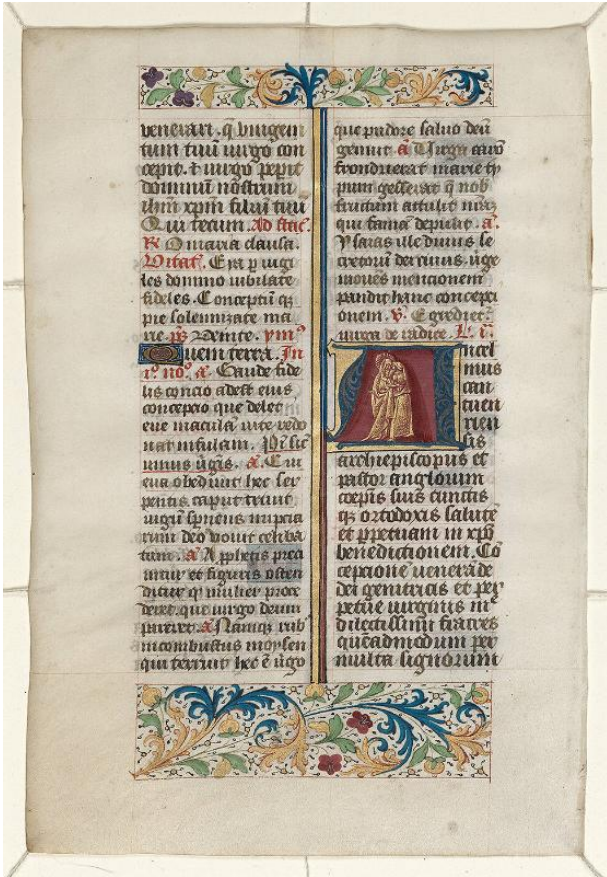 venerari. q̄ unigeni
tum tuū virgo con
cepit. ⁊ virgo pepit
dominū nostrum
ihm̄ xpm̄ filiū tuū
Qui tecum. Ad
℟ O maria clausa.
Eya p vigi
les domino iubilate
fideles. Conceptū qꝫ
pie solemnizate ma
rie. p̄s Venite. ymꝰ
Quem terra. In
iꝰ noꝰ a̅ Gaude fide
lis concio adest eius
concepcio que delet
eue maculā vite redo
nat insulam. Ps̄
a̅. Cui
eua obediuit hec ser
pentis caput triuit
spernens nupcia
rum deo vouit celiba
tum. a̅ A pphetis preca
nitur et figuris osten
ditur q mulier proce
deret que virgo deum
pareret. a̅ Namqꝫ rub
incombustus moysen
qui terruit hec ē v̄go
que pudore saluo deū
genuit. a̅ Virga aarō
fronduerat marie ty
pum gesserat q nob
fructum attulit
qui famē depulit. a̅.
Ysaias ille diuus se
cretorū dei
moues mentionem
pandit hanc concepci
onem. ℣. Egrediet̄
virga de radice. L. i
Ancel
mus
can
tuen
rien
sis
archiepiscopus et
pastor anglorum
coepis suis cunctis
qꝫ ortodoxis salutē
et ppetuam in xpo
benedictionem. Cō
cepcione venerāde
dei genitricis et per
petue virginis mꝰ
dilectissimi fratres
quēadmodum per
multa signorum